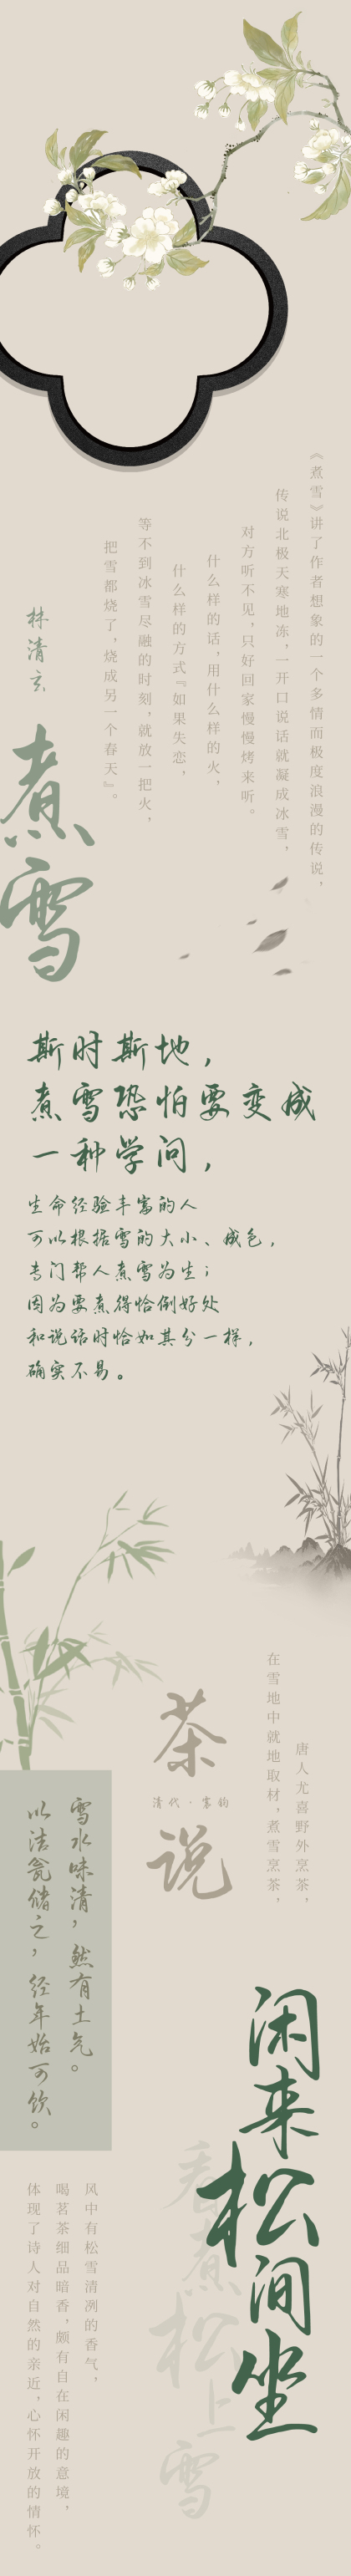 《煮雪》讲了作者想象的一个多情而极度浪漫的传说，
传说北极天寒地冻，一开口说话就凝成冰雪，
对方听不见，只好回家慢慢烤来听。
什么样的话，用什么样的火，
什么样的方式『如果失恋，
等不到冰雪尽融的时刻，就放一把火，
把雪都烧了，烧成另一个春天』。
林清玄
煮雪
斯时斯地，
煮雪恐怕要变成
一种学问，
生命经验丰富的人
可以根据雪的大小、成色，
专门帮人煮雪为生；
因为要煮得恰倒好处
和说话时恰如其分一样，
确实不易。
唐人尤喜野外烹茶，
在雪地中就地取材，煮雪烹茶，
茶说
清代·震钧
雪水味清，然有土气。
以洁瓮储之，经年始可饮。
闲来松间坐
看煮松上雪
风中有松雪清冽的香气，
喝茗茶细品暗香，颇有自在闲趣的意境，
体现了诗人对自然的亲近，心怀开放的情怀。